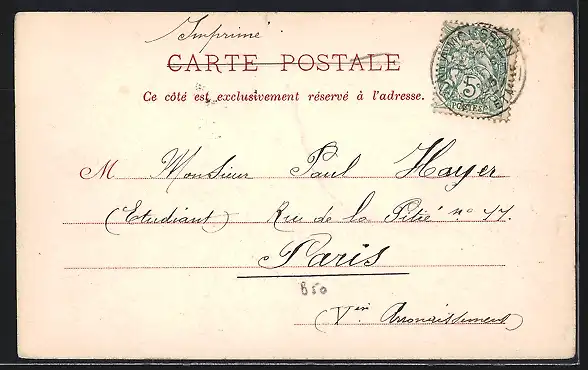 Imprimé
CARTE POSTALE
Ce côté est exclusivement réservé à l'adresse.
5
POSTES
M Monsieur Paul Hayer
(Etudiant) Rue de la Pitié no 17.
Paris
B50
(Vème Arrondissement)